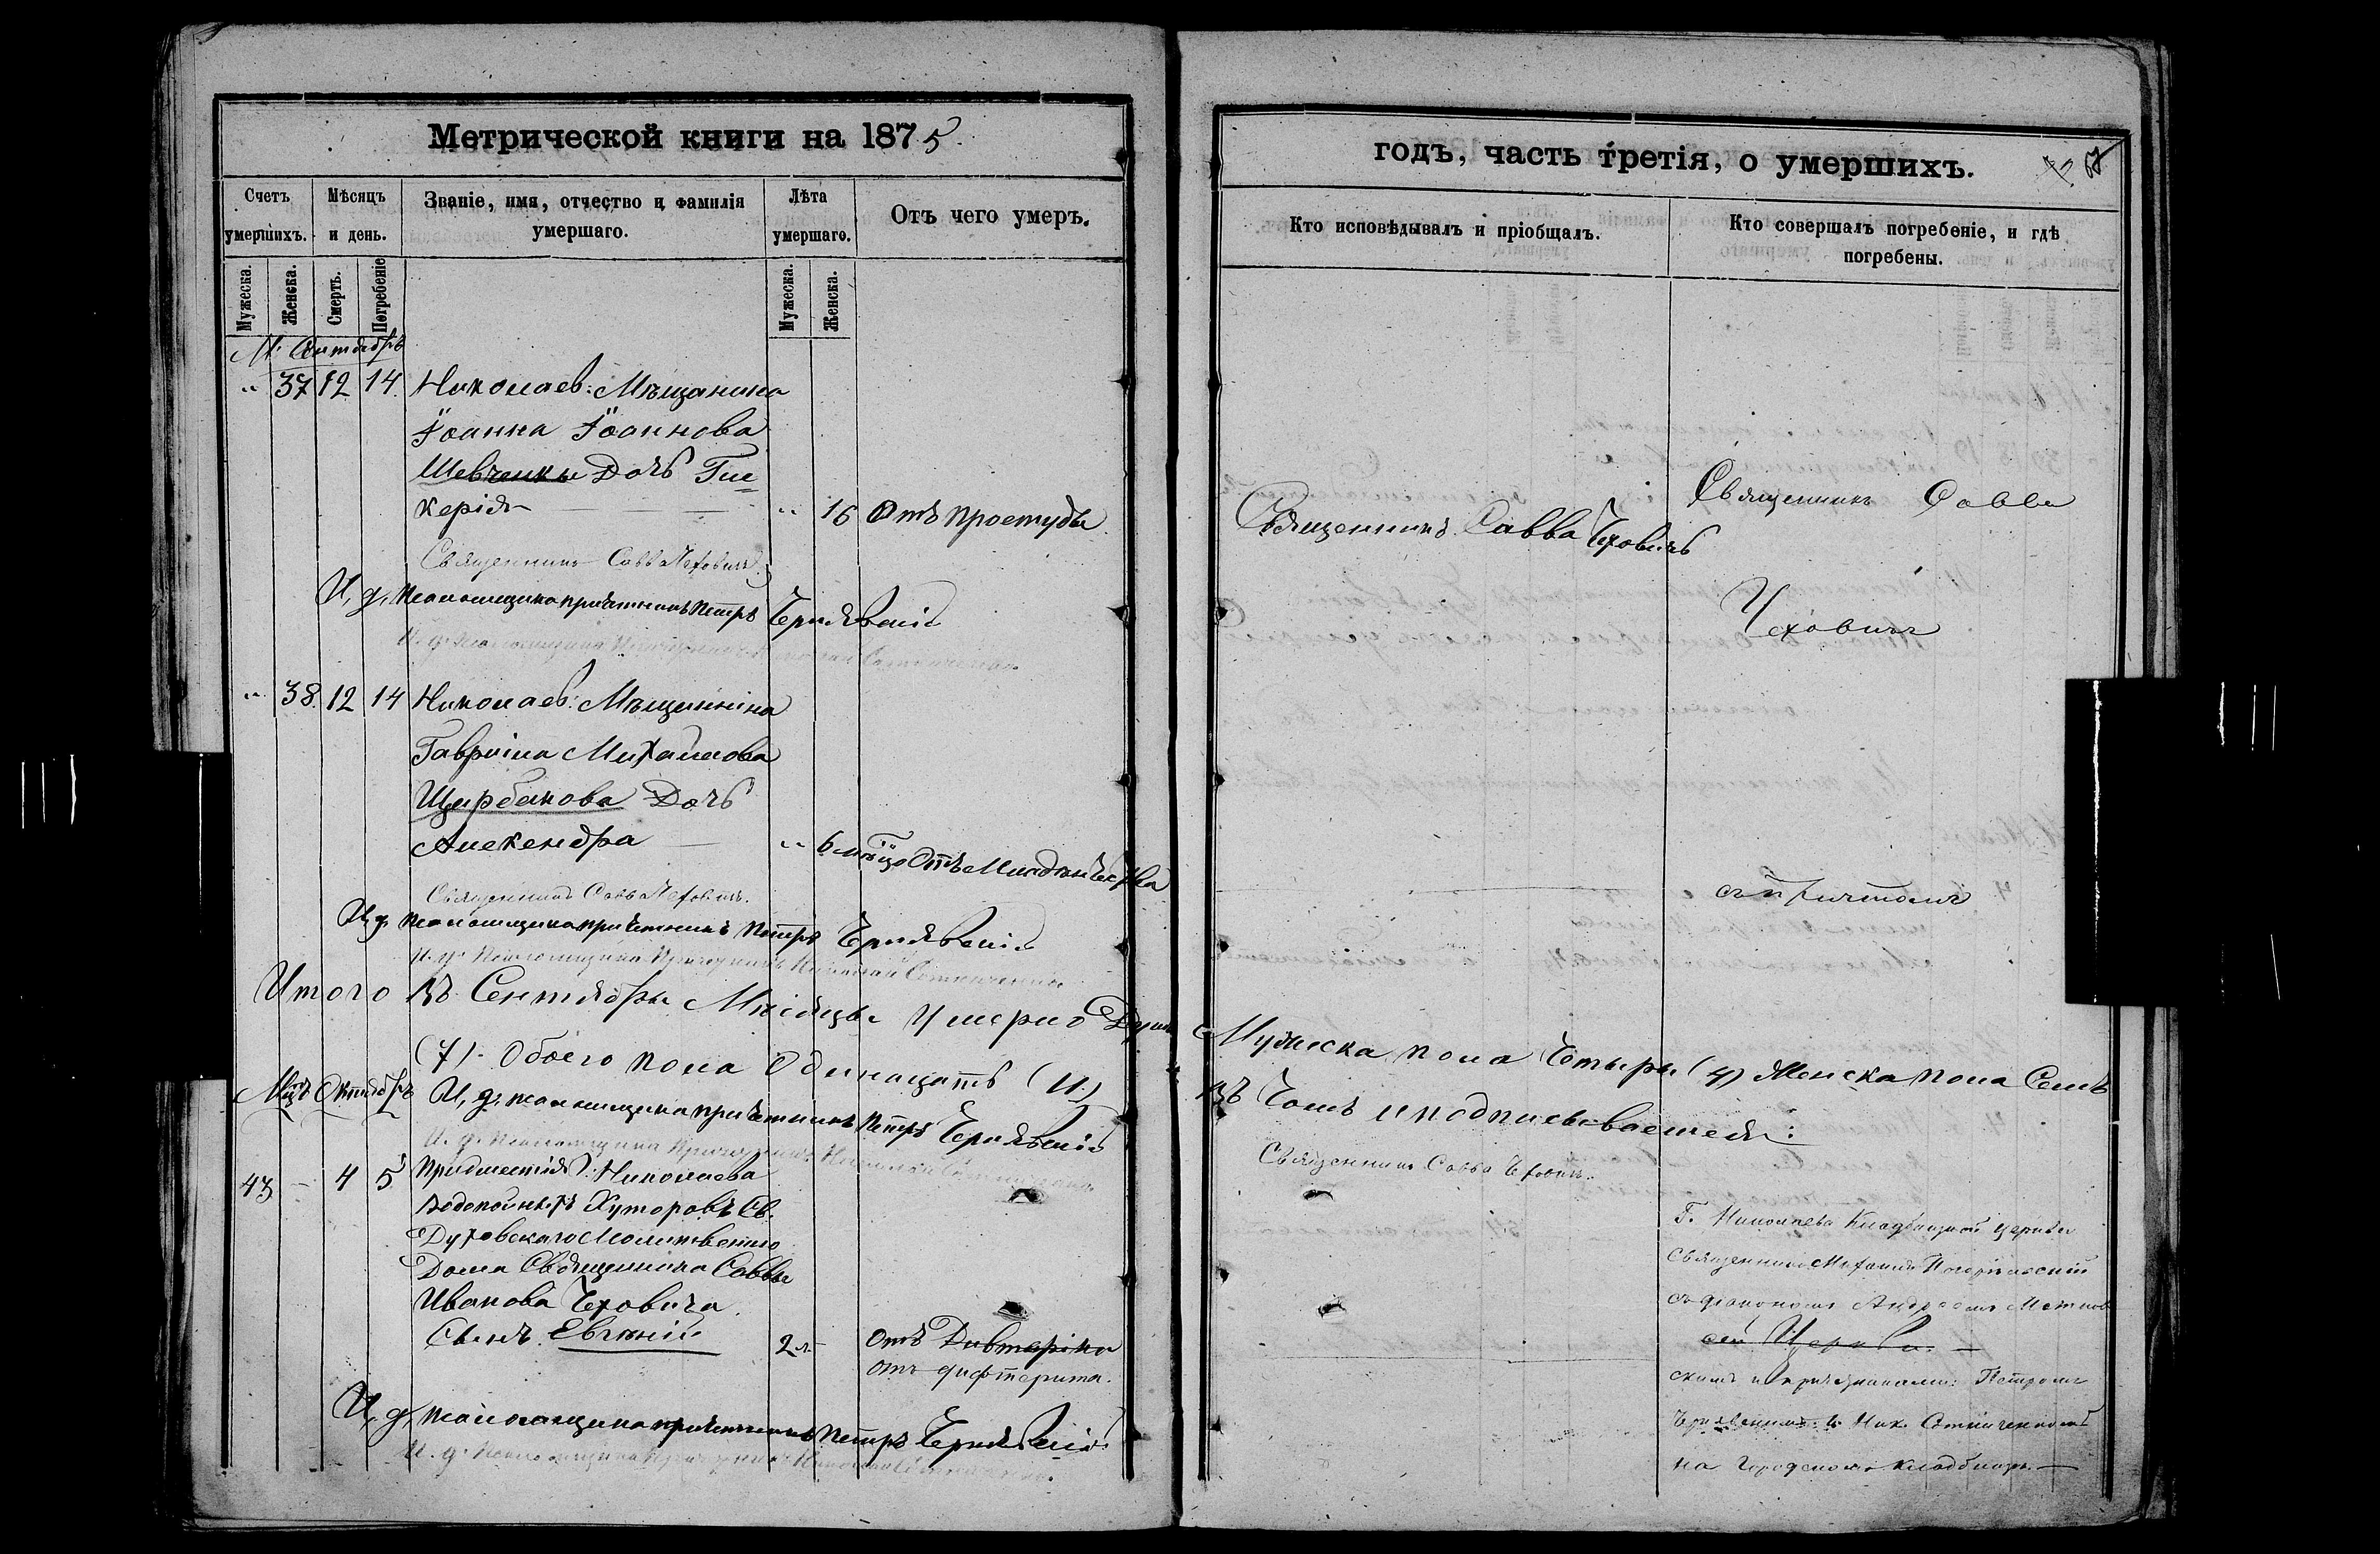 Метрической книги на 1875.
Счетъ умершихъ.
Мѣсяцъ и день.
Званіе, имя, отчество и фамилія умершаго.
Лѣта умершаго.
Отъ чего умеръ.
Мужеска.
Женска.
Смерть.
Погребеніе
Мужеска.
Женска.
„ 37 12 14. Николаев: Мѣщанина
Іоанна Іоаннова
Шевченки Дочь Гли
керія „ 16 Отъ простуды
Священникъ Савва Чеховичъ
И, д, псаломщика причетникъ Петръ Чернявскій
И. д. псаломщика Причетникъ Николай
„ 38. 12 14 Николаев: Мѣщанина
Гавріила Михайлова
Щербакова Дочь
Александра „ 6 мѣц Отъ Младенчества
Священникъ Савва Чеховичъ.
И, д, псаломщика причетникъ Петръ Чернявскій
И. д. Псаломщика Причетникъ Николай
Итого въ Сентябрѣ Мѣсяцѣ умерло Душъ
(7). Обоего пола Одинацать (11.)
Мцъ Октябрь И, д, псаломщика причетникъ Петръ Чернявскій
И. д. Псаломщика Причетникъ
43 – 4 5 Николаева
Водопойныхъ Хуторовъ Св.
Духовскаго Молитвеннаго
Дома Священника Саввы
Иванова Чеховича
Сынъ Евгеній 2 л. отъ Дивтеріта
отъ дифтерита.
И, д, псаломщика причетникъ Петръ Чернявскій
И. д. Псаломщика Причетникъ Николай
годъ, часть третія, о умершихъ.
Кто исповѣдывалъ и пріобщалъ.
Кто совершалъ погребеніе, и гдѣ погребены.
Священникъ Савва Чеховичъ
Священникъ Савва
Чеховичъ
съ причтомъ
Мужеска пола Четыре (4) Женска пола Семь
Въ Томъ и подписываемся:
Священникъ Савва Чеховичъ.
Г. Николаева Кладбищной церкви
Священникъ Михаилъ
съ діакономъ Андреемъ
сей Церкви. —
скимъ и причетниками: Петромъ
Чернявскимъ и Ник.
на Городскомъ кладбищѣ. —